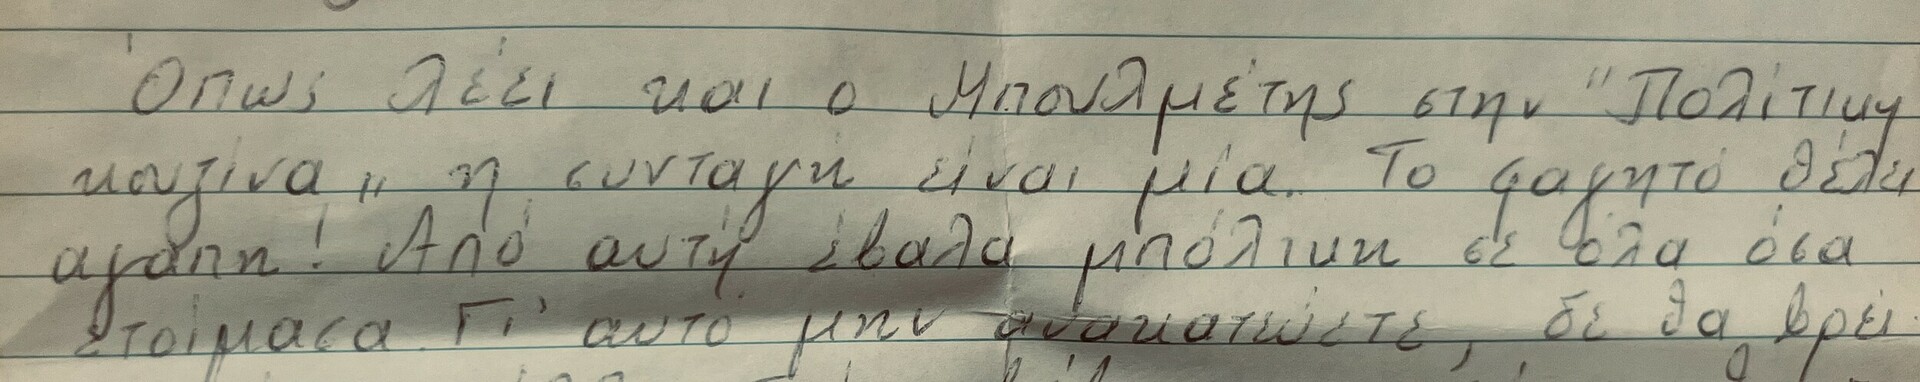 Όπως λέει και ο Μπουλμέτης στην "Πολίτικη
κουζίνα" η συνταγή είναι μία. Το φαγητό θέλει
αγάπη! Από αυτή έβαλα μπόλικη σε όλα όσα
ετοίμασα. Γι' αυτό μην ανακατώνετε, δε θα βρεί